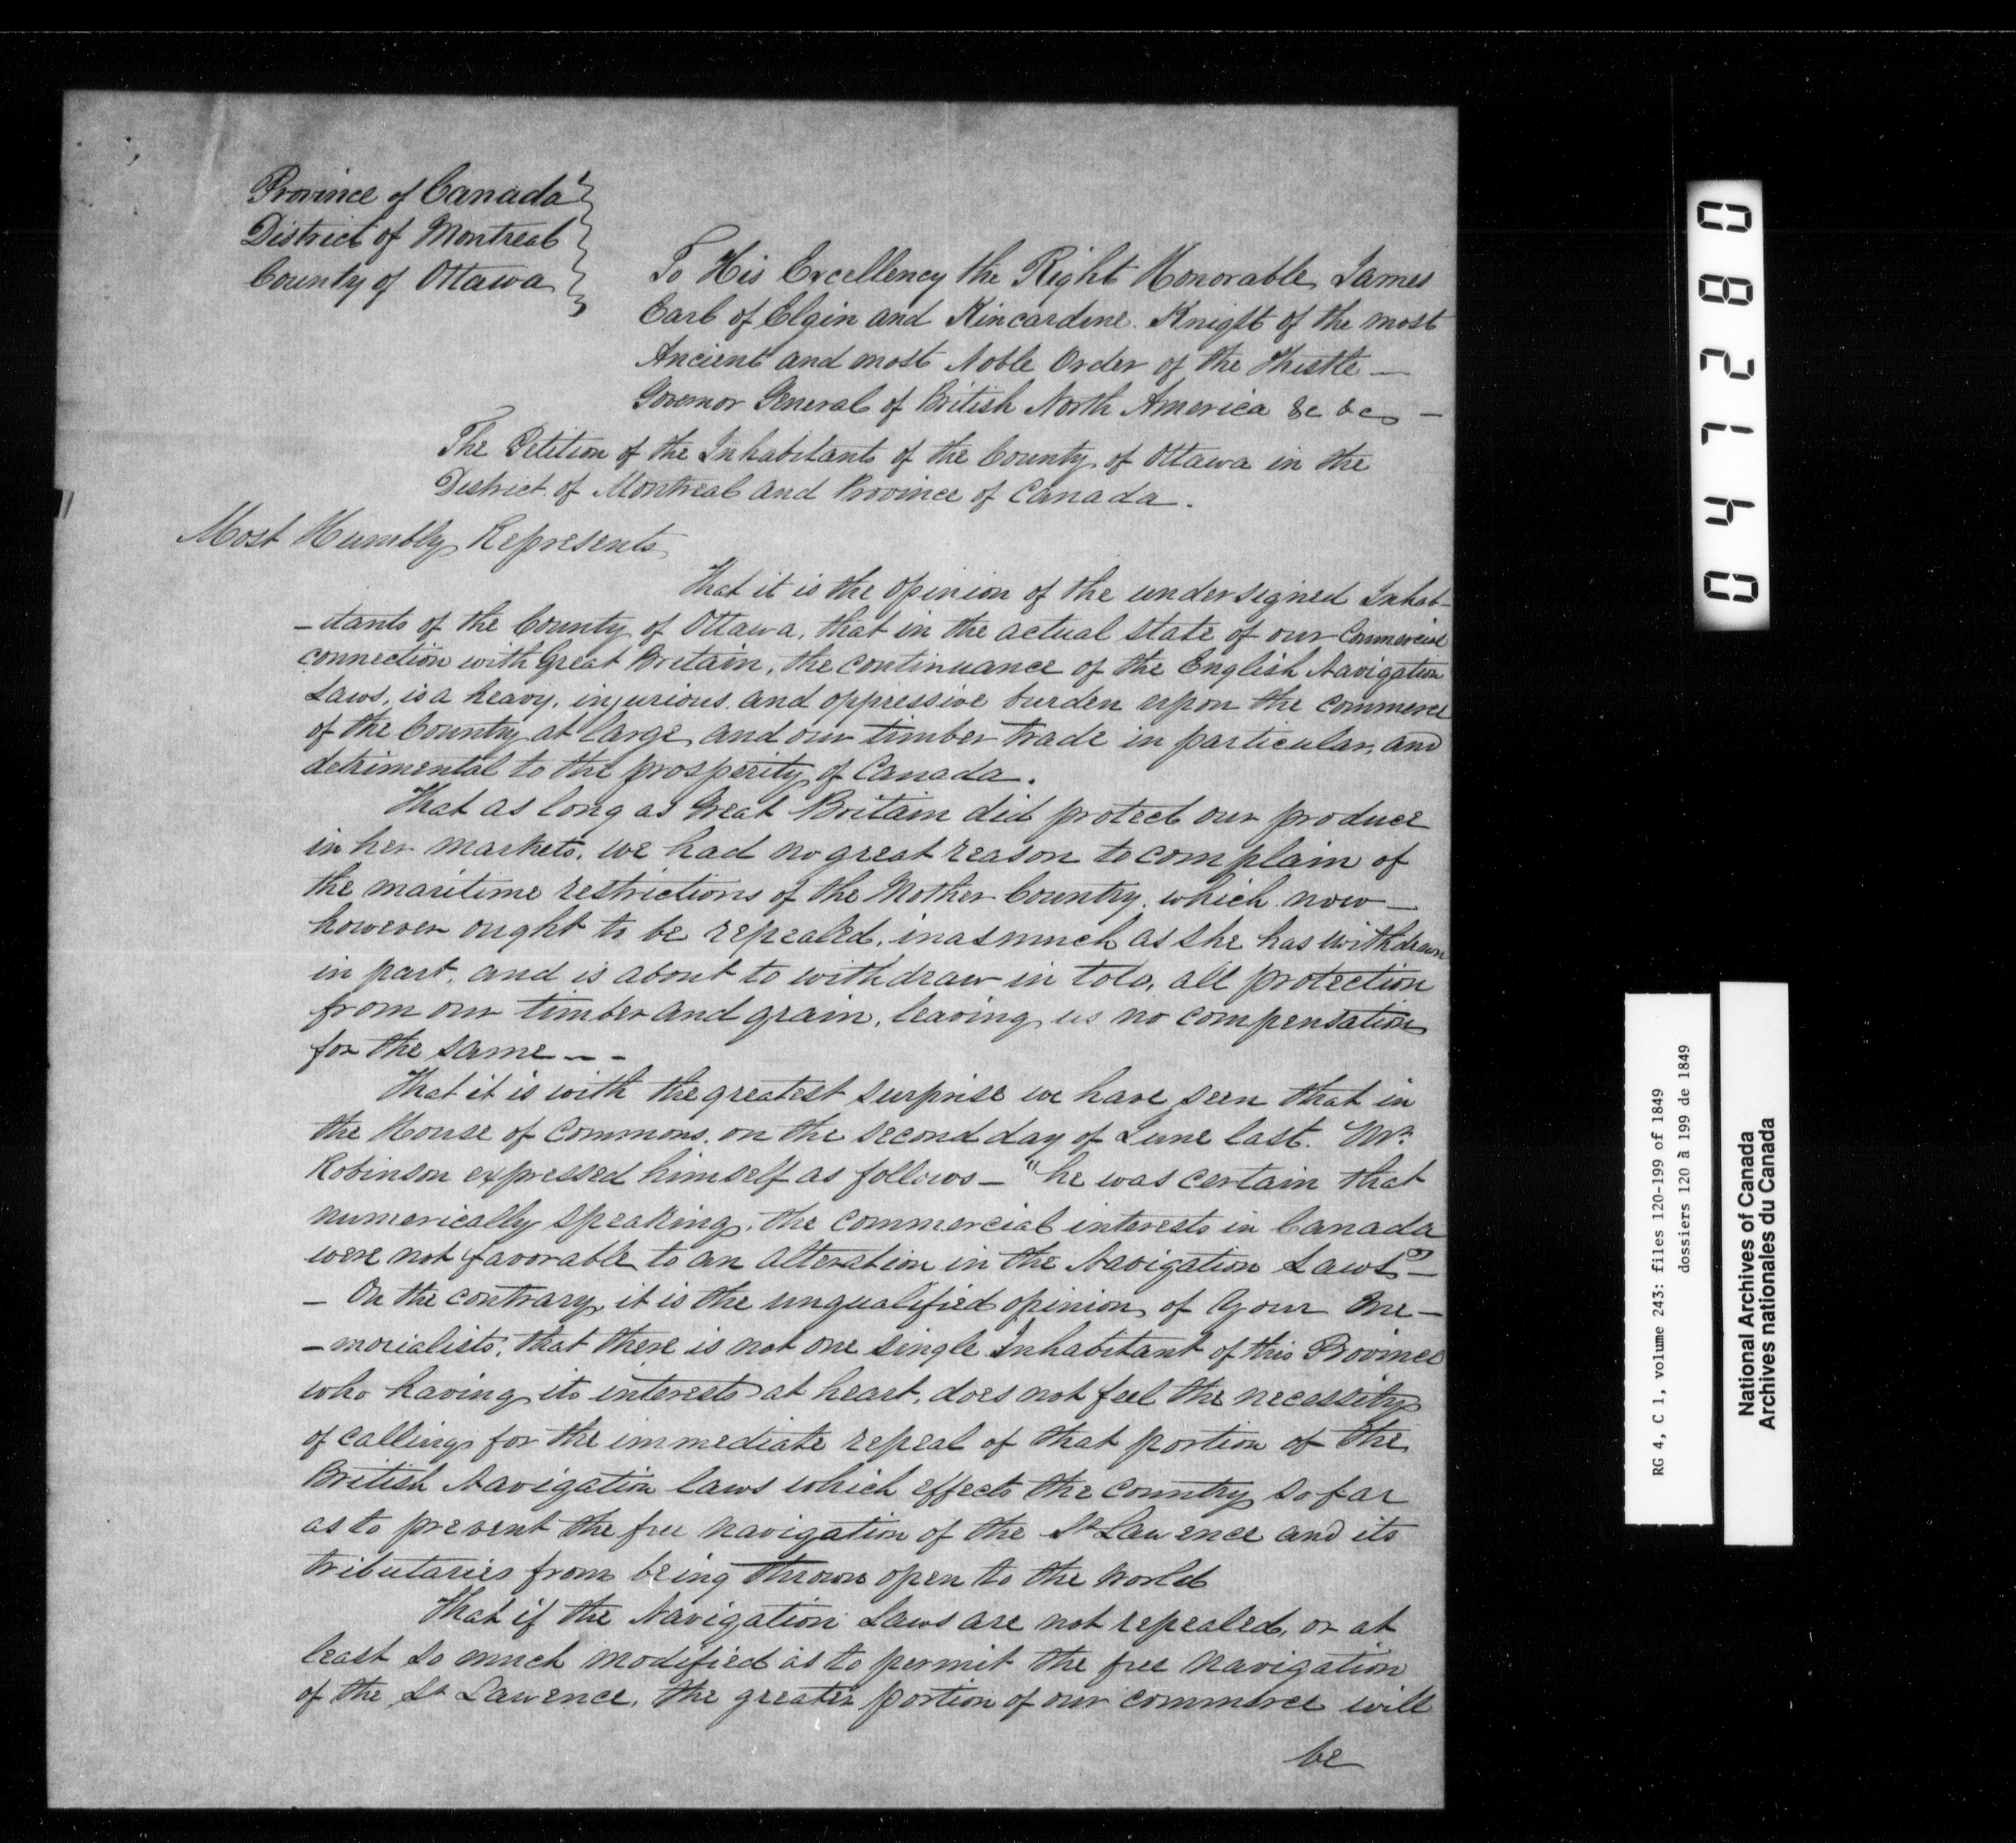 Province of Canada
District of Montreal
County of Ottawa
To His Excellency the Right Honorable James
Earl of Elgin and Kincardine. Knight of the most
Ancient and most Noble Order of the Thistle —
Governor General of British North America &c &c —
The Petition of the Inhabitants of the County of Ottawa in the
District of Montreal and Province of Canada.
Most Humbly Represents
That it is the opinion of the undersigned Inhab-
-itants of the County of Ottawa, that in the actual state of our Commercial
connection with Great Britain, the continuance of the English Navigation
Laws, is a heavy, injurious and oppressive burden upon the commerce
of the Country at large and our timber trade in particular, and
detrimental to the prosperity of Canada.
That as long as Great Britain did protect our produce
in her markets, we had no great reason to complain of
the maritime restrictions of the Mother Country, which now —
however ought to be repealed, inasmuch as she has withdrawn
in part, and is about to withdraw in toto, all protection
from our timber and grain, leaving us no compensation
for the same - -
That it is with the greatest surprise we have seen that in
the House of Commons, on the second day of June last. Mr.
Robinson expressed himself as follows — "he was certain that
numerically speaking, the commercial interests in Canada
were not favorable to an alteration in the Navigation Laws" —
— On the contrary, it is the unqualified opinion of Your Me-
-morialists, that there is not one single Inhabitant of this Province
who having its interests at heart, does not feel the necessity
of calling for the immediate repeal of that portion of the
British Navigation laws which effects the country so far
as to prevent the free navigation of the St Lawrence and its
tributaries from being thrown open to the World
That if the Navigation Laws are not repealed, or at
least so much modified as to permit the free navigation
of the St Lawrence, the greater portion of our commerce will
be
0471280
RG 4, C 1, volume 243: files 120-199 of 1849
dossiers 120 à 199 de 1849
National Archives of Canada
Archives nationales du Canada